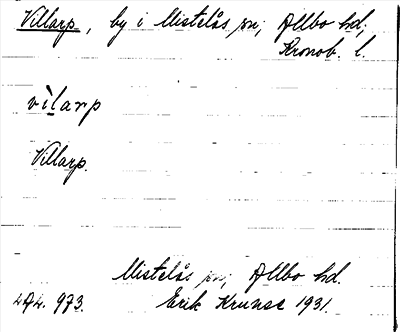 Villarp, by i Mistelås sn, Allbo hd,
Kronob. l.
vìlarp
Villarp.
Mistelås sn, Allbo hd.
973. Erik Krunse 1931.